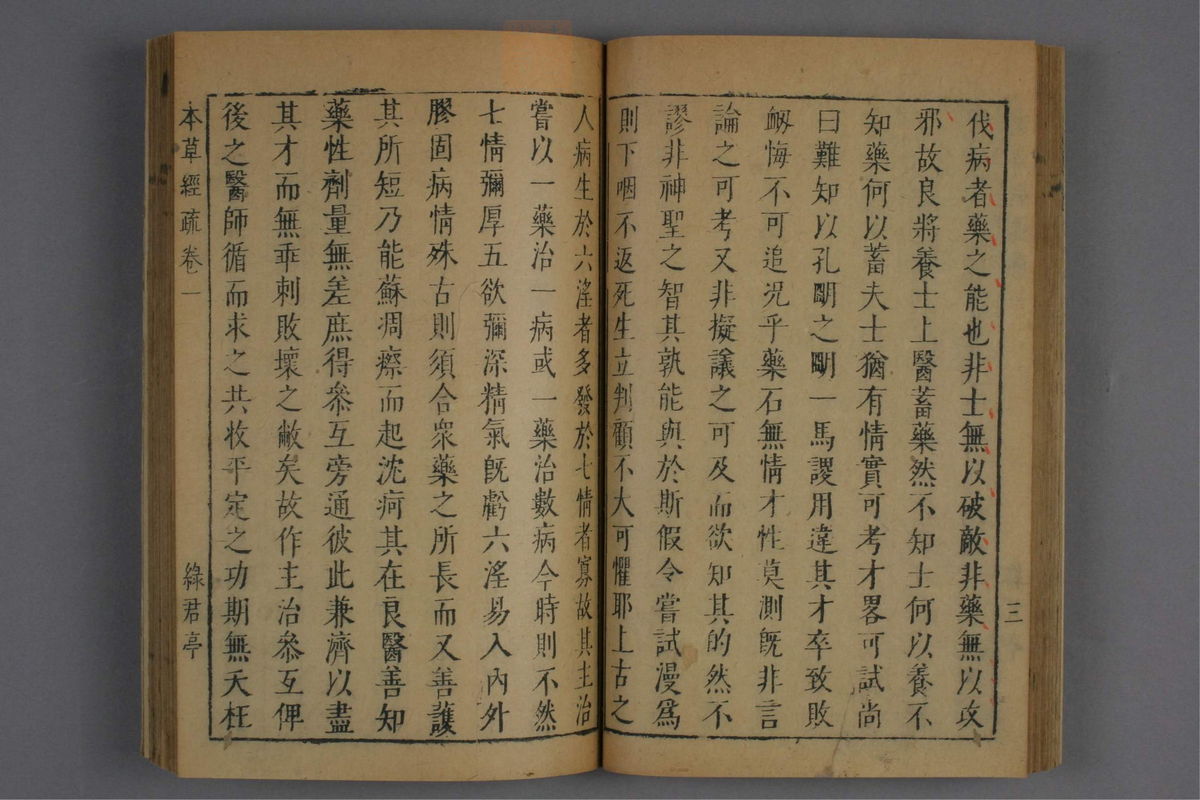 三
伐病者藥之能也非士無以破敵非藥無以攻
邪故良將養士上醫蓄藥然不知士何以養不
知藥何以蓄夫士猶有情實可考才畧可試尚
曰難知以孔朙之朙一馬謖用違其才卒致敗
衂悔不可追况乎藥石無情才性莫測既非言
論之可考又非擬議之可及而欲知其的然不
謬非神聖之智其孰能與於斯假令嘗試漫爲
則下咽不返死生立判顧不大可懼耶上古之
人病生於六淫者多發於七情者寡故其主治
嘗以一藥治一病或一藥治數病今時則不然
七情彌厚五欲彌深精氣既虧六淫易入內外
膠固病情殊古則須合衆藥之所長而又善護
其所短乃能蘇凋瘵而起沈疴其在良醫善知
藥性劑量無差庶得叅互旁通彼此兼濟以盡
其才而無乖剌敗壞之敝矣故作主治叅互俾
後之醫師循而求之共收平定之功期無夭枉
本草經疏卷一
綠君亭